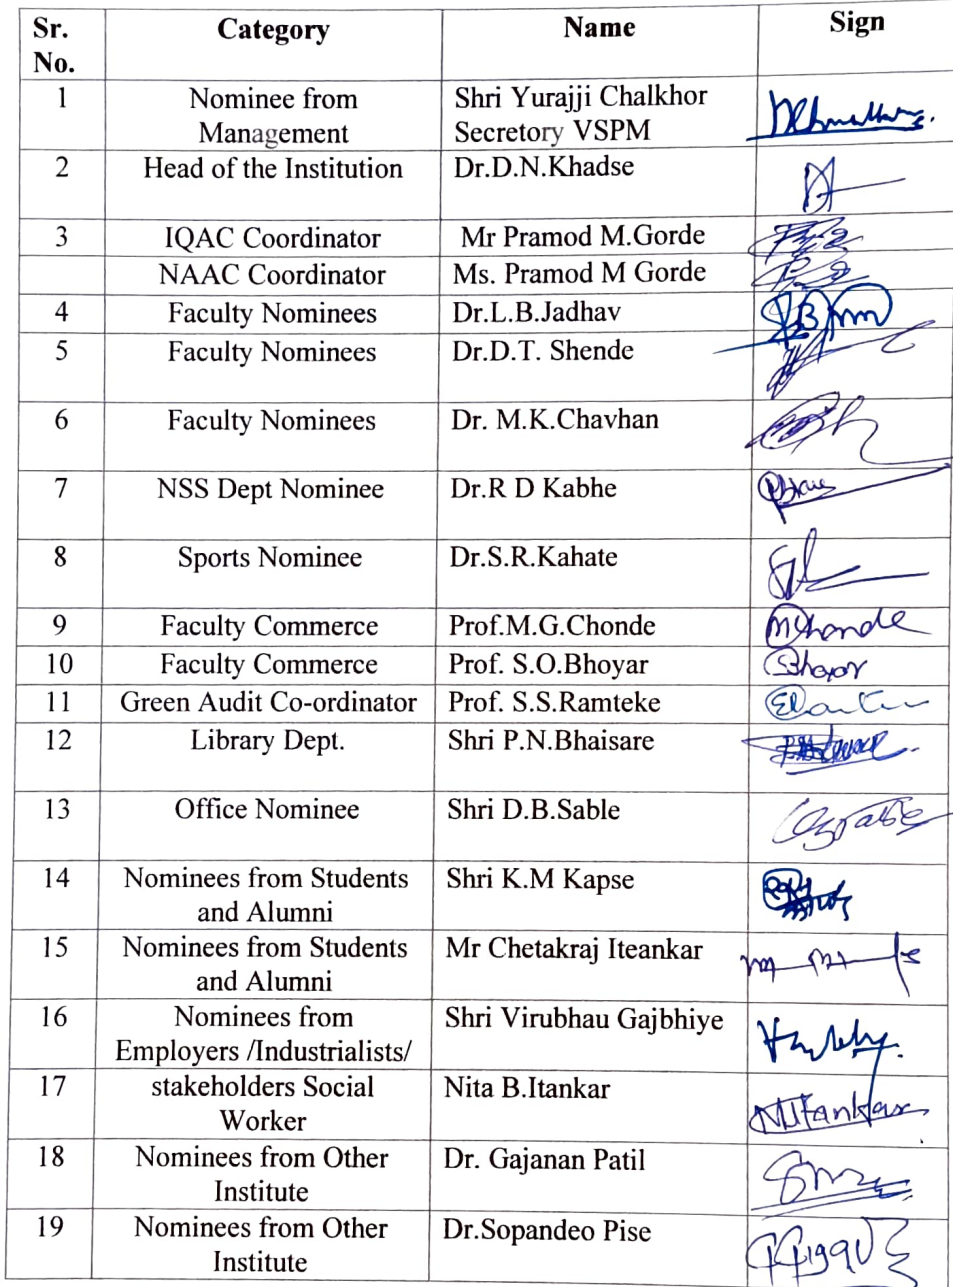 Sr. No. Category Name Sign
1 Nominee from Management Shri Yurajji Chalkhor Secretory VSPM
2 Head of the Institution Dr.D.N.Khadse
3 IQAC Coordinator Mr Pramod M.Gorde
NAAC Coordinator Ms. Pramod M Gorde
4 Faculty Nominees Dr.L.B.Jadhav
5 Faculty Nominees Dr.D.T. Shende
6 Faculty Nominees Dr. M.K.Chavhan
7 NSS Dept Nominee Dr.R D Kabhe
8 Sports Nominee Dr.S.R.Kahate
9 Faculty Commerce Prof.M.G.Chonde MChonde
10 Faculty Commerce Prof. S.O.Bhoyar SBhoyar
11 Green Audit Co-ordinator Prof. S.S.Ramteke
12 Library Dept. Shri P.N.Bhaisare
13 Office Nominee Shri D.B.Sable
14 Nominees from Students and Alumni Shri K.M Kapse
15 Nominees from Students and Alumni Mr Chetakraj Iteankar
16 Nominees from Employers /Industrialists/ Shri Virubhau Gajbhiye
17 stakeholders Social Worker Nita B.Itankar NItankar
18 Nominees from Other Institute Dr. Gajanan Patil
19 Nominees from Other Institute Dr.Sopandeo Pise